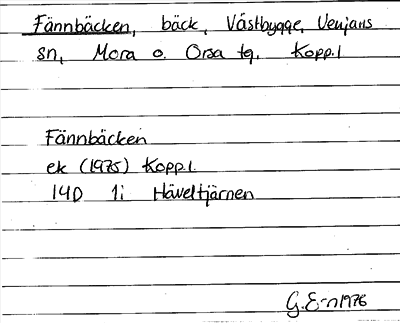 Fännbäcken, bäck, Västbygge, Venjans
sn, Mora o. Orsa tg. Kopp.l
Fännbäcken
ek (1975) Kopp.l.
14D 1i Häveltjärnen
G. E-n 1976